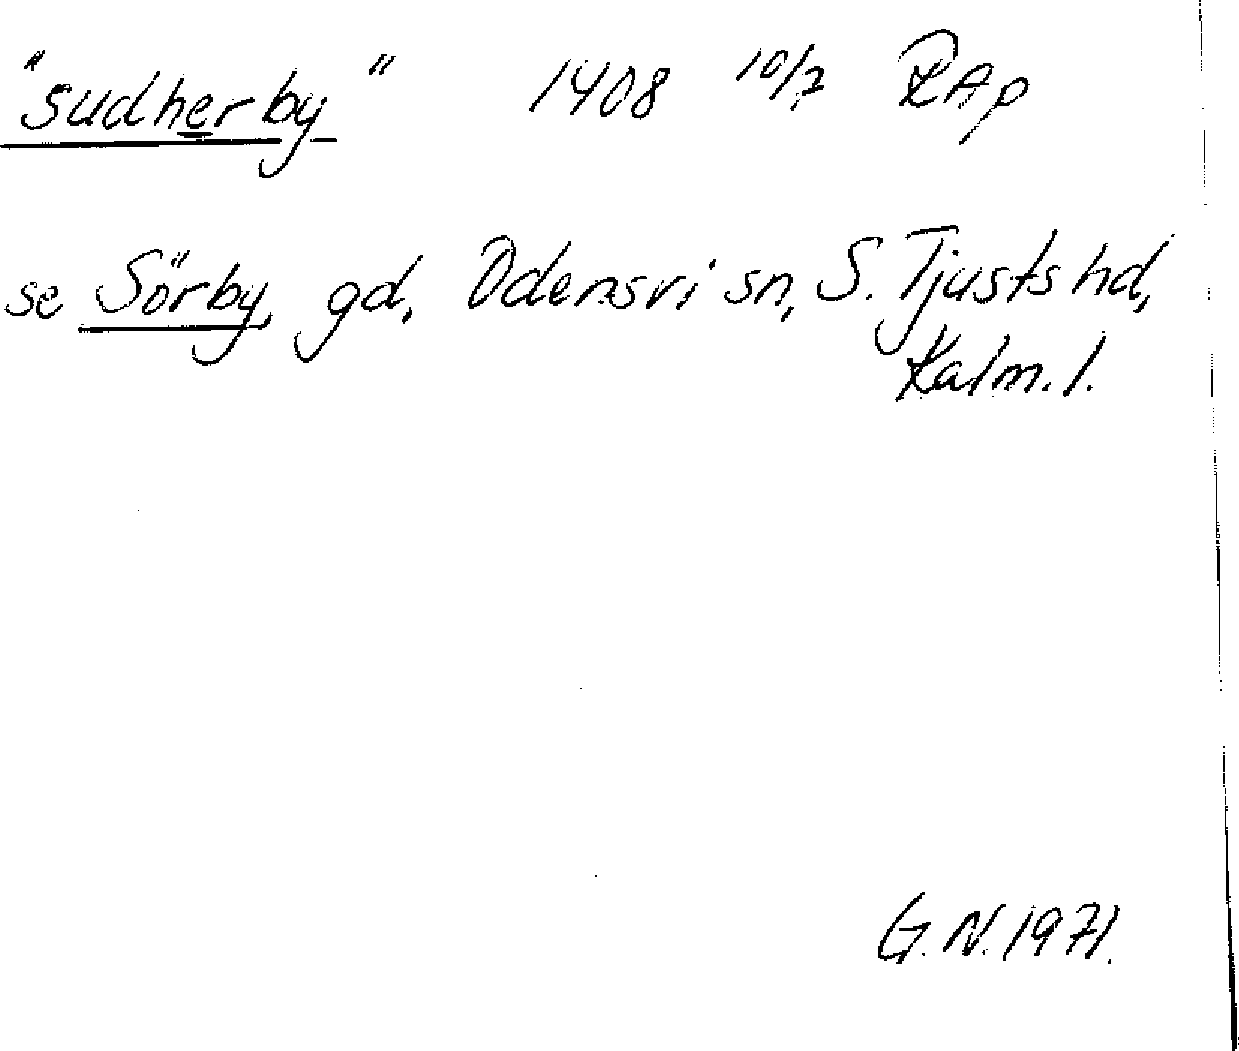 "sudherby" 1408 10/7 RAp
se Sörby, gd, Odensvi sn, S. Tjusts hd,
Kalm. l.
G. N. 1971.